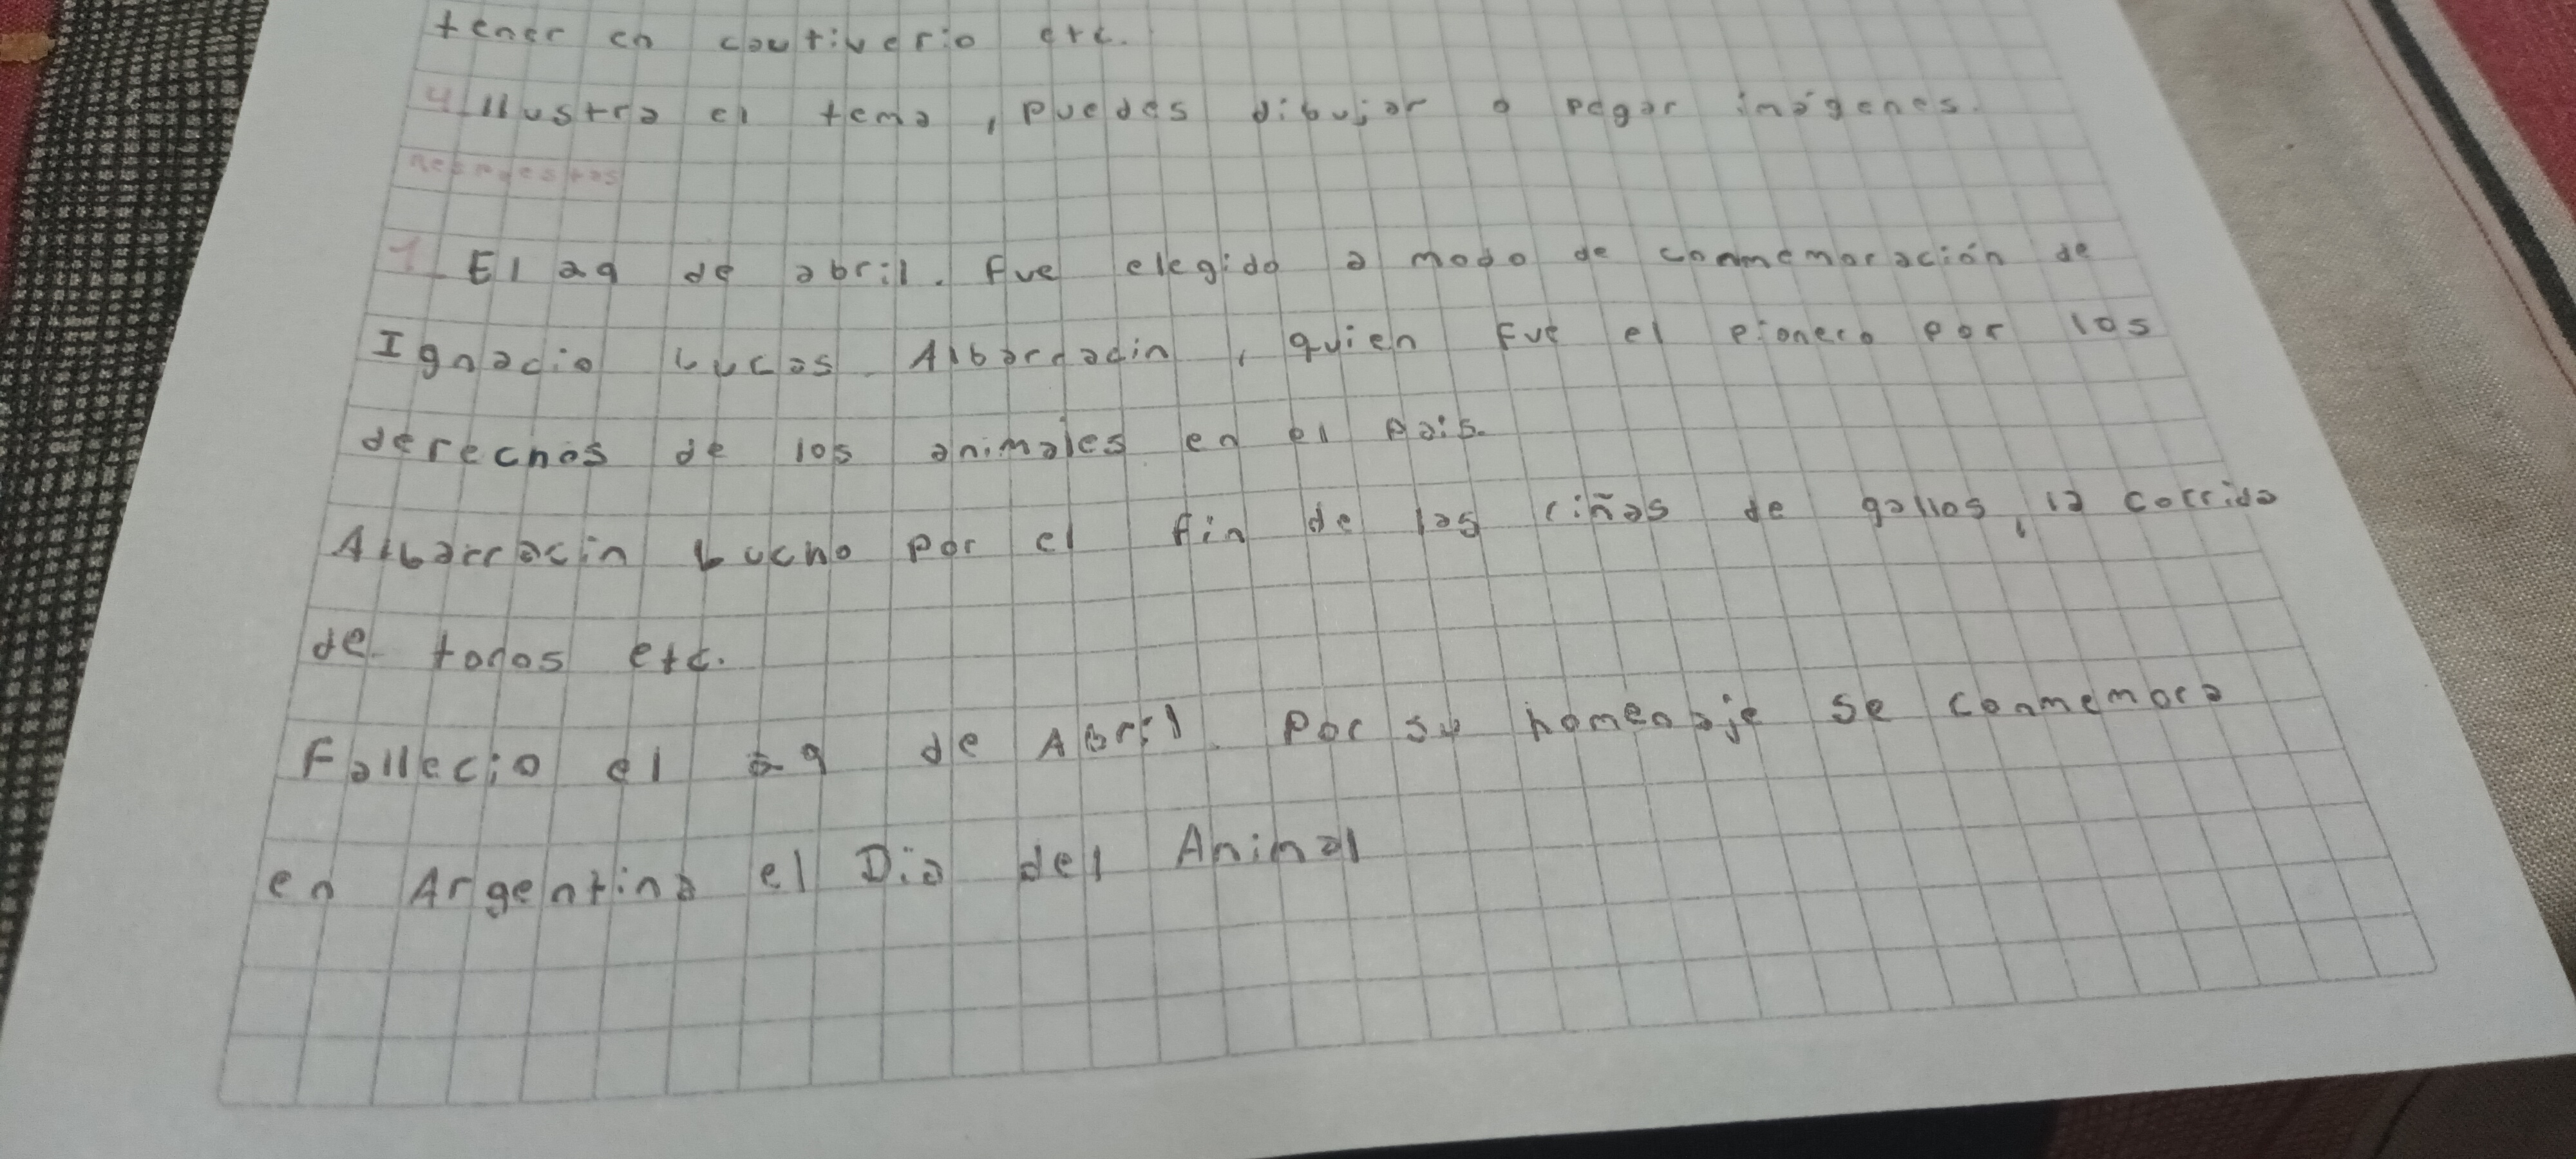 tener en cautiverio etc.
4 Ilustra el tema, puedes dibujar o pegar imágenes.
Respuestas
1_ El 29 de abril. Fue elegido a modo de conmemoración de
Ignacio Lucas Albarracin, quien Fue el pionero por los
derechos de los animales en el pais.
Albarracin Lucho por el fin de las riñas de gallos, la corrida
de todos etc.
Fallecio el 29 de Abril. Por su homenaje se conmemora
en Argentina el Dia del Animal